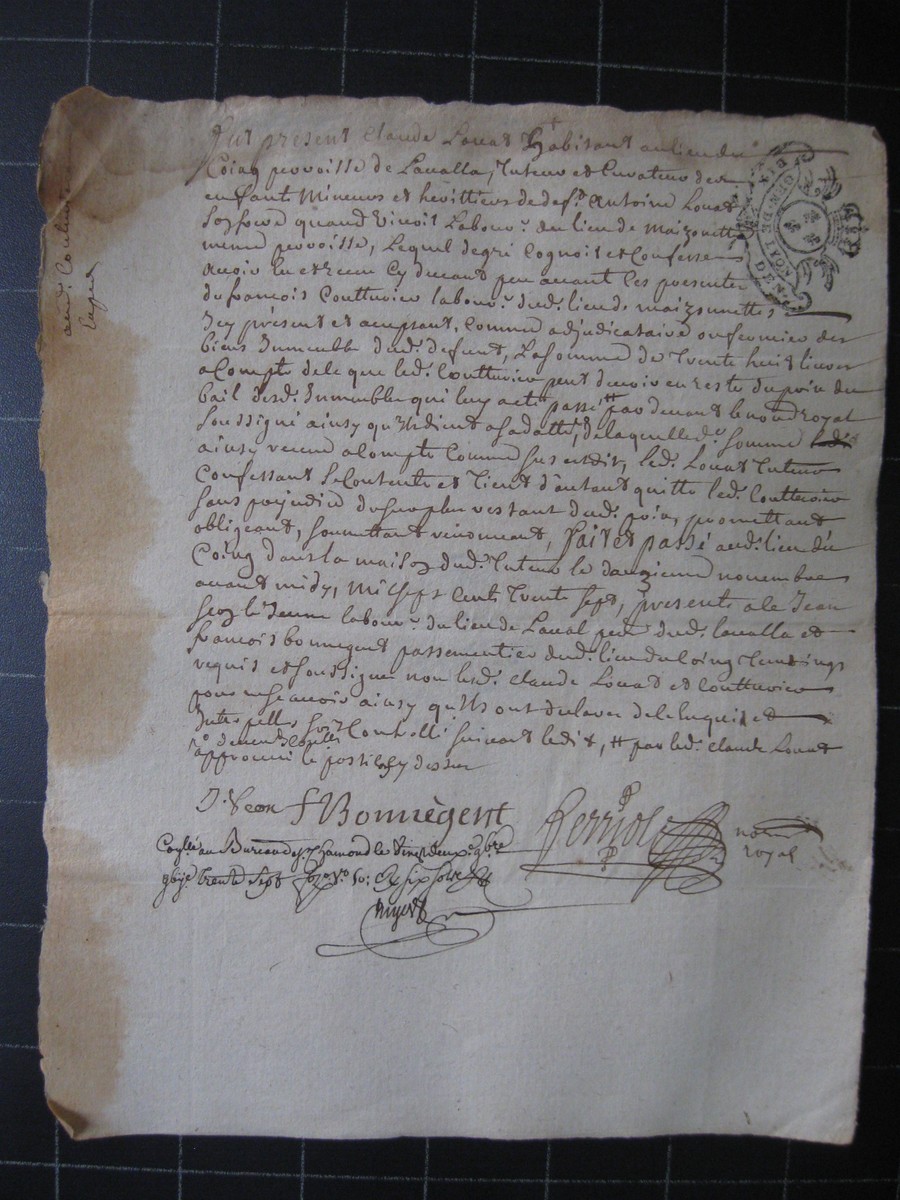 fut présent Claude Louat habitant au lieu du
Coing parroisse de Lavalla, Tuteur et Curateur des
enfants Mineurs et herittiers de def.t Antoine Louat
son frere quand vivoit Labour.r du lieu de Maizonette
meme parroisse, Lequel de gré Cognoit et Confesse
avoir heu et receu Cy devant peu avant Ces presentes
de françois Coutturier labour.r dud. lieu de maizonnettes
Icy présent et acceptant, Comme adjudicataire ou fermier des
biens Immeubles dud. defunt, La somme de Trente huit livres
a Compte de Ce que led. Coutturier peut devoir en reste du prix du
bail desd. Immeubles qui luy a esté passé par devant le no.re royal
soussigné ainsy qu'ils dient a sa datte, de laquelle d. somme
ainsy receue a Compte Comme sus est dit, led. Louat Tuteur
Confessant se Contente et Tient d'autant quitte led. Coutturier
sans prejudice du surplus restant dud. prix, promettant
obligeant, soumettant renonçant, fait et passé aud. lieu du
Coing dans la maison dud. Tuteur le douzieme novembre
avant midy, Mil sept Cents Trente sept, presents a ce Jean
seon le Jeune labour.r du lieu de Laval par.se dud. lavalla et
françois bonnegent passementier dud. lieu du Coing Temoings
requis et soussignés non lesd. Claude Louat et Coutturier
pour ne sçavoir ainsy qu'ils ont declaré de Ce Enquis et
Interpellés sera Controllé suivant ledit, # par led. Claude Louat
approuvé le postille cy dessus
J. Seon f Bonnègent
Ferriole no.re
royal
Co.llé au Bureau de S.t Chamond le Vingt deux 9bre
trente sept six sols